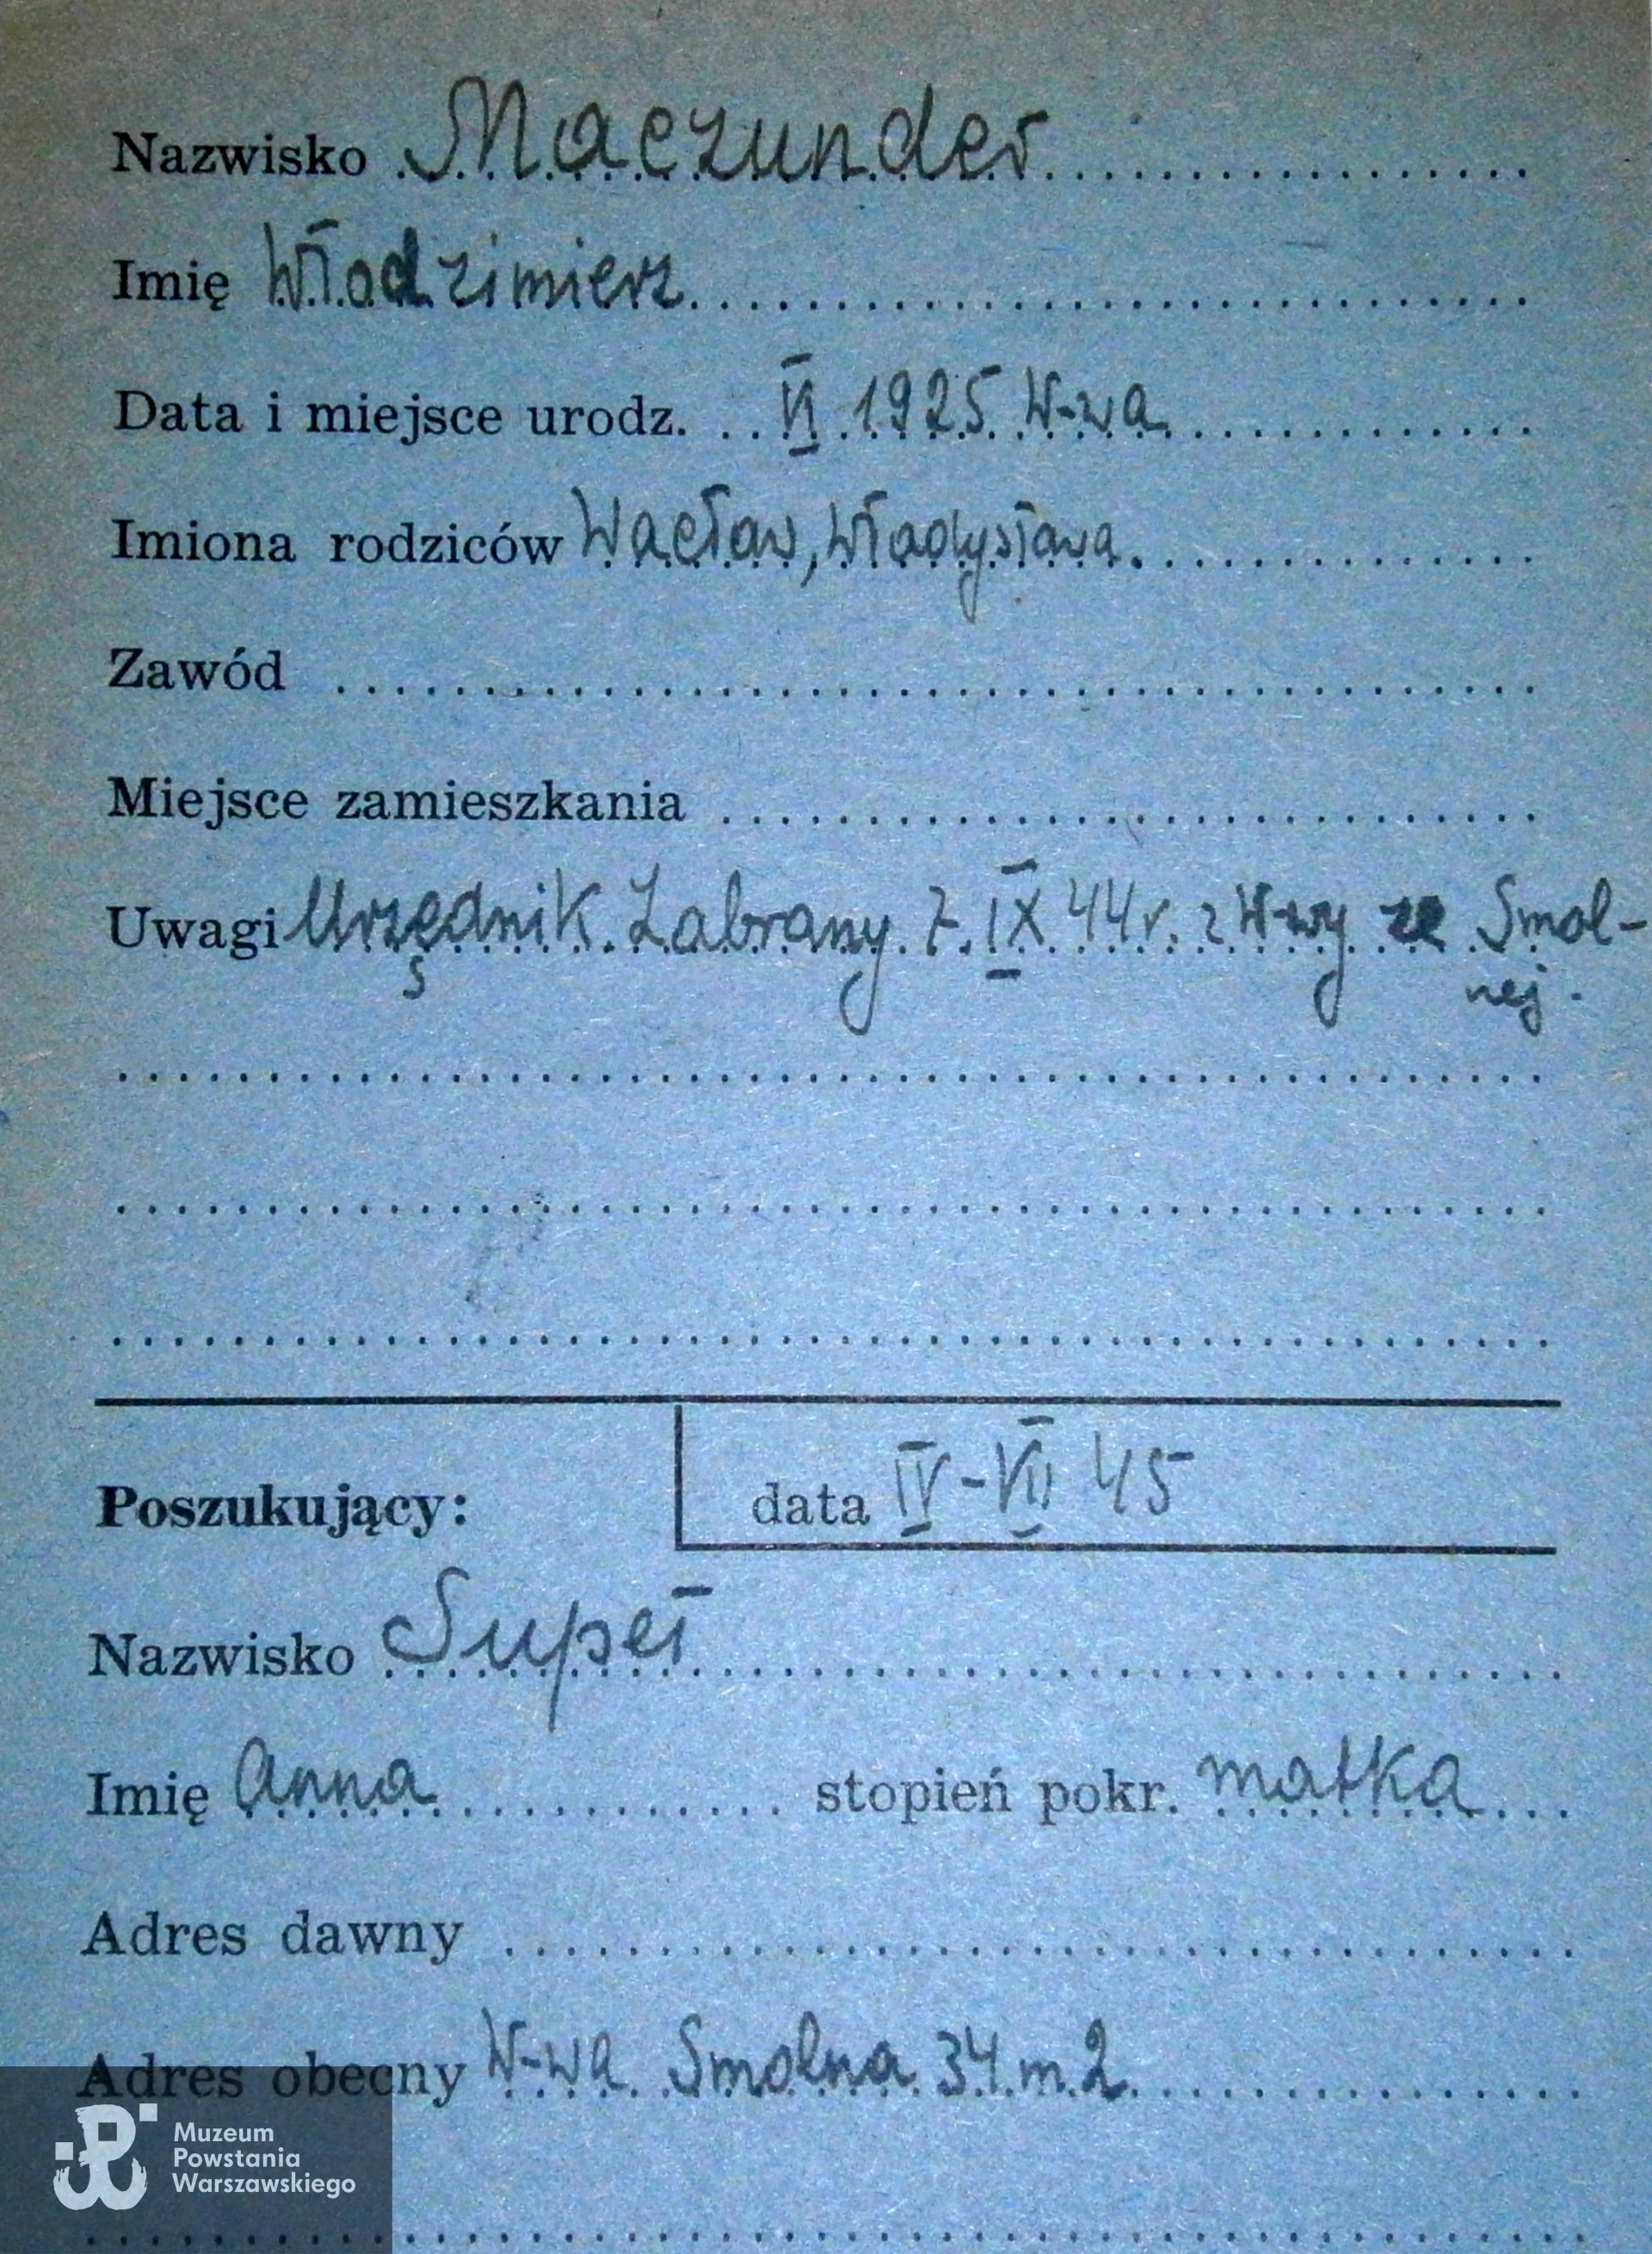 Nazwisko Maczunder
Imię Włodzimierz
Data i miejsce urodz. VI 1925 W-wa
Imiona rodziców Wacław, Władysława
Zawód
Miejsce zamieszkania
Uwagi Urzędnik. Zabrany 7.IX 44r. z W-wy ze Smol-
nej.
Poszukujący:
data IV-VII 45
Nazwisko Supeł
Imię Anna stopień pokr. matka
Adres dawny
Adres obecny W-wa Smolna 34 m. 2
Muzeum
Powstania
Warszawskiego